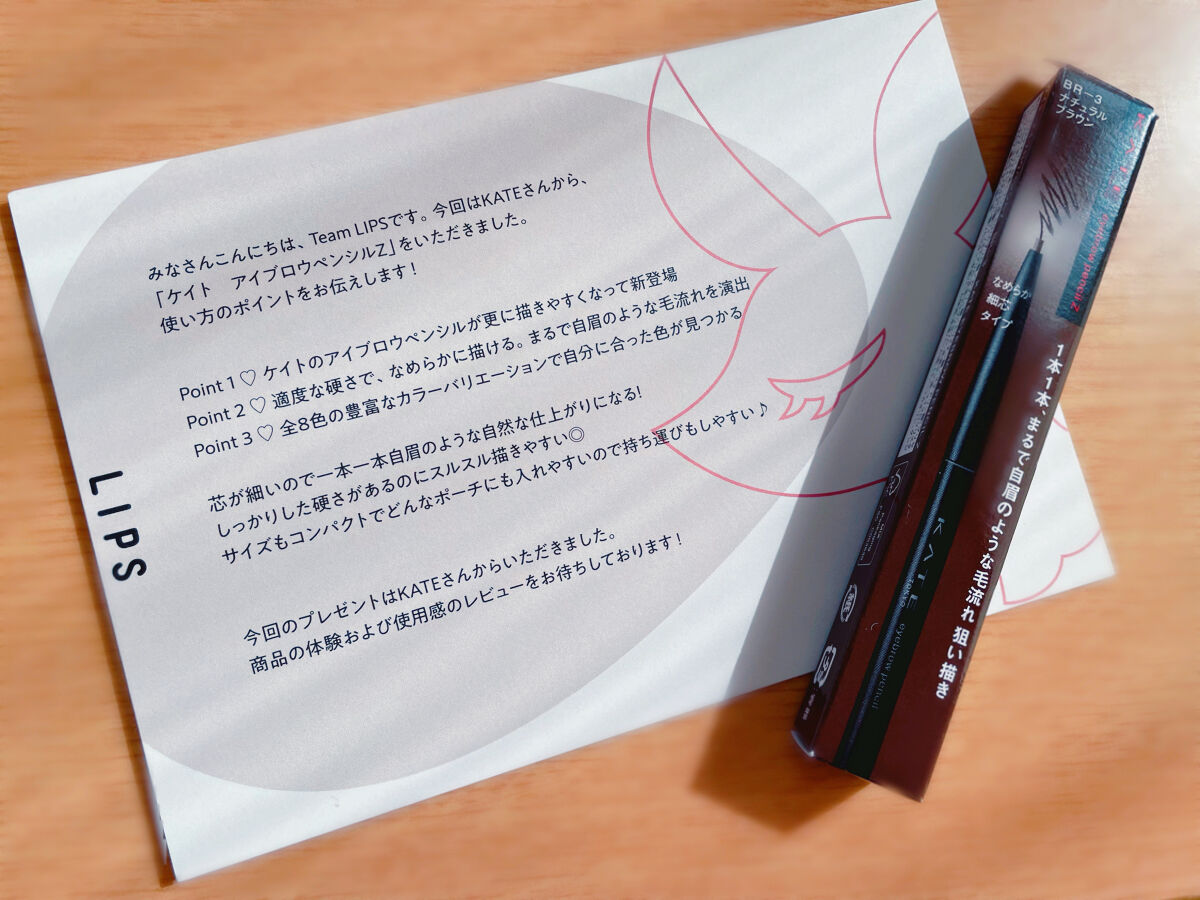 みなさんこんにちは、Team LIPSです。今回はKATEさんから、
「ケイト　アイブロウペンシルZ」をいただきました。
使い方のポイントをお伝えします！
Point 1 ♡ ケイトのアイブロウペンシルが更に描きやすくなって新登場
Point 2 ♡ 適度な硬さで、なめらかに描ける。まるで自眉のような毛流れを演出
Point 3 ♡ 全8色の豊富なカラーバリエーションで自分に合った色が見つかる
芯が細いので一本一本自眉のような自然な仕上がりになる!
しっかりした硬さがあるのにスルスル描きやすい◎
サイズもコンパクトでどんなポーチにも入れやすいので持ち運びもしやすい♪
今回のプレゼントはKATEさんからいただきました。
商品の体験および使用感のレビューをお待ちしております！
LIPS
BR-3
ナチュラル
ブラウン
eyebrow pencil Z
なめらか
細芯
タイプ
1本1本、まるで自眉のような毛流れ 狙い描き
KATE
TOKYO
eyebrow pencil